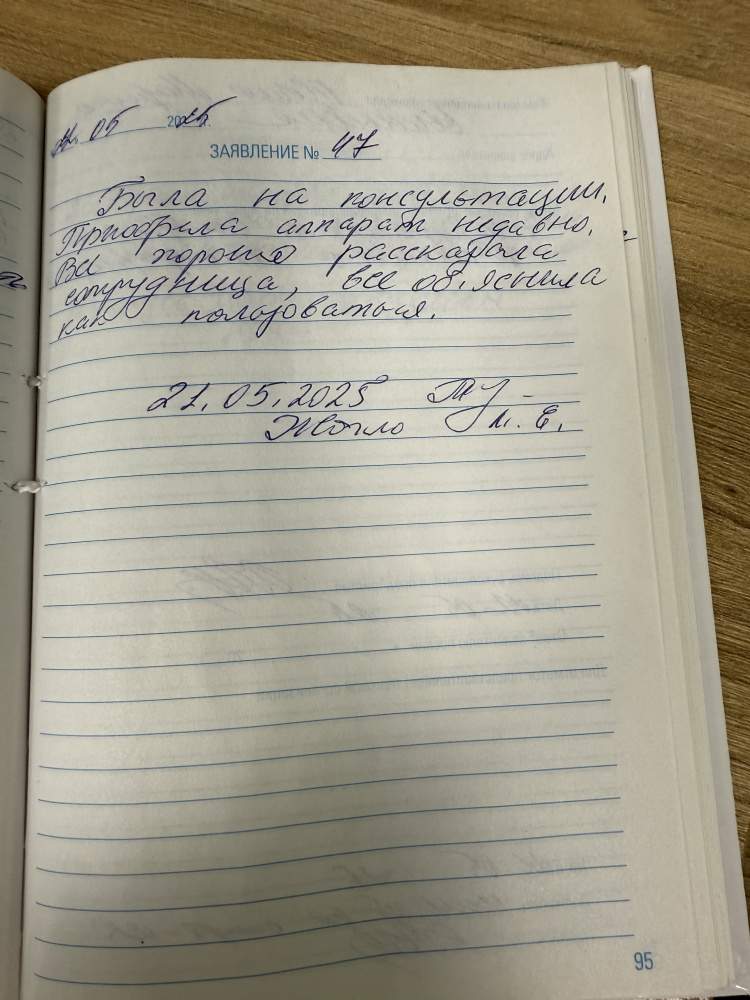 21. 05 2025г.
ЗАЯВЛЕНИЕ № 47
Была на консультации.
Приобрела аппарат недавно.
Все хорошо рассказала
сотрудница, все об,яснила
как пользоваться.
21.05.2025
М. Е.
95